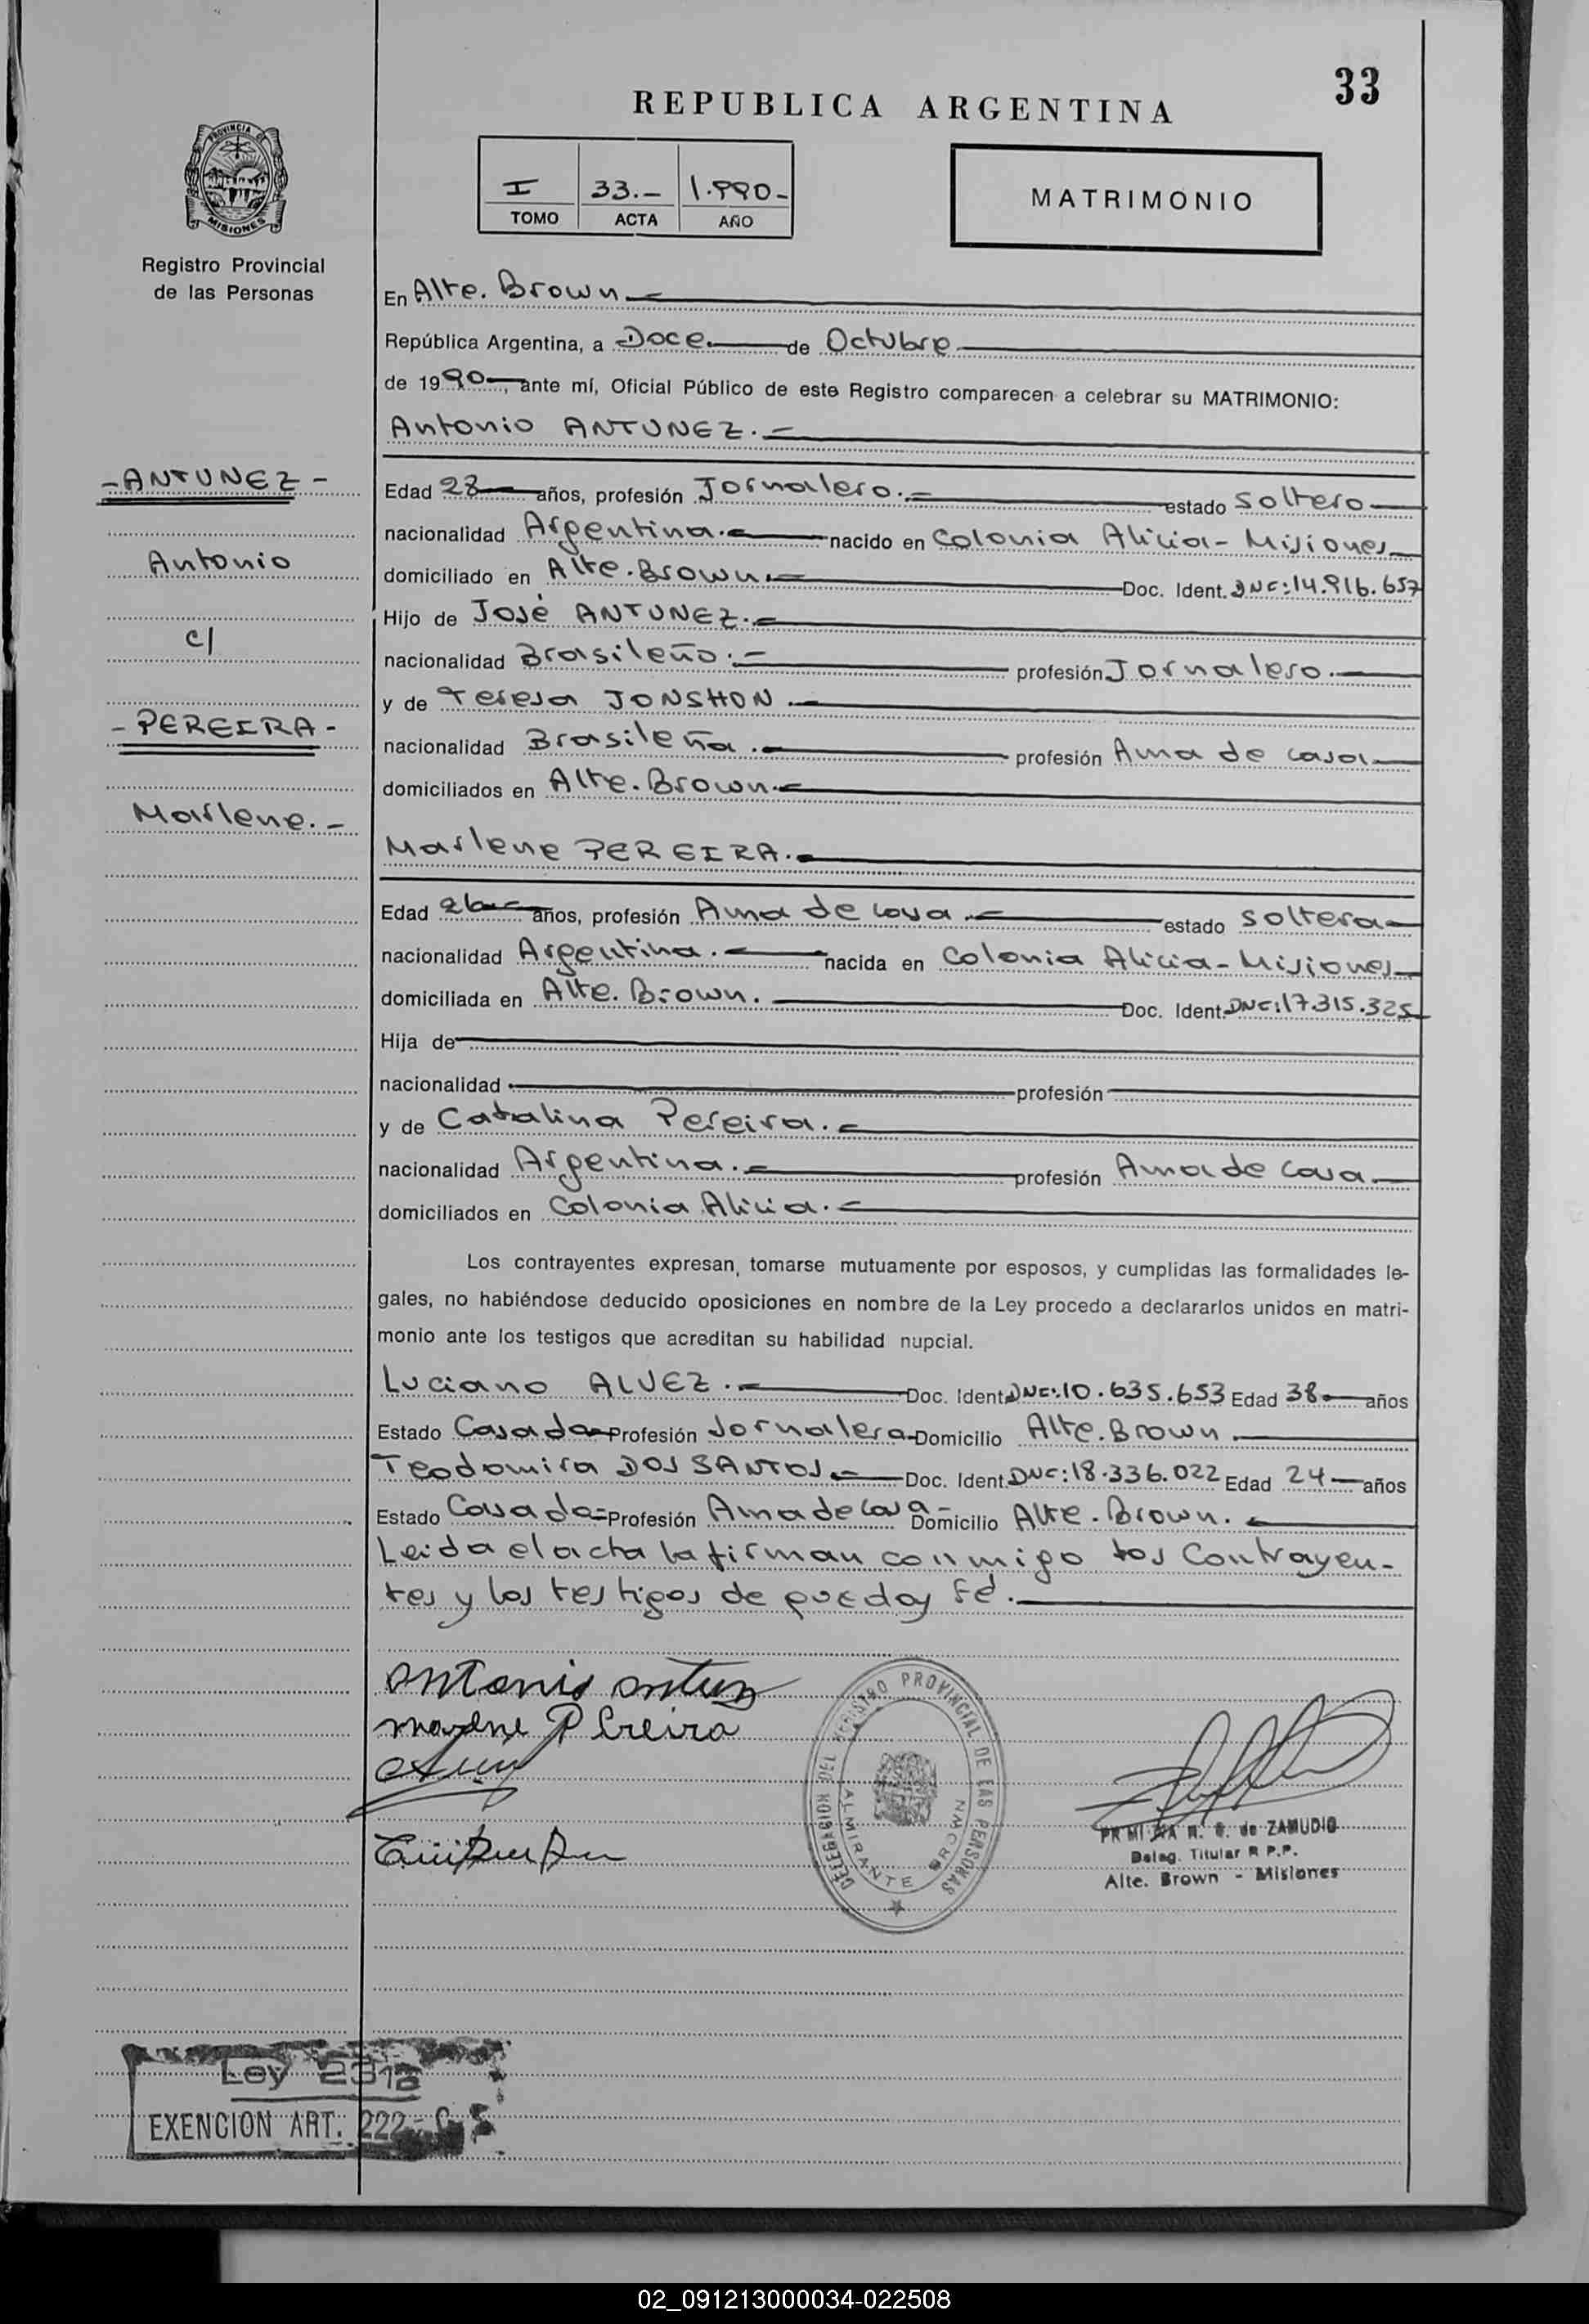 33
REPUBLICA ARGENTINA
PROVINCIA DE
MISIONES
Registro Provincial
de las Personas
I 33.- 1.990-
TOMO ACTA AÑO
MATRIMONIO
En Alte. Brown
República Argentina, a Doce de Octubre
de 1990, ante mí, Oficial Público de este Registro comparecen a celebrar su MATRIMONIO:
Antonio ANTUNEZ.-
- ANTUNEZ -
Antonio
c/
- PEREIRA -
Marlene.-
Edad 28 años, profesión Jornalero.- estado soltero
nacionalidad Argentina.- nacido en Colonia Alicia - Misiones
domiciliado en Alte. Brown.- Doc. Ident. DNI: 14.916.657
Hijo de José ANTUNEZ.-
nacionalidad Brasileño.- profesión Jornalero.-
y de Teresa JONSHON.-
nacionalidad Brasileña.- profesión Ama de casa
domiciliados en Alte. Brown.-
Marlene PEREIRA.-
Edad 26 años, profesión Ama de casa.- estado soltera
nacionalidad Argentina.- nacida en Colonia Alicia - Misiones
domiciliada en Alte. Brown. Doc. Ident. DNI: 17.315.325
Hija de
nacionalidad profesión
y de Catalina Pereira.-
nacionalidad Argentina.- profesión Ama de casa
domiciliados en Colonia Alicia.-
Los contrayentes expresan, tomarse mutuamente por esposos, y cumplidas las formalidades le-
gales, no habiéndose deducido oposiciones en nombre de la Ley procedo a declararlos unidos en matri-
monio ante los testigos que acreditan su habilidad nupcial.
Luciano ALVEZ.- Doc. Ident. DNI: 10.635.653 Edad 38 años
Estado Casado Profesión Jornalero Domicilio Alte. Brown.
Teodomira DOS SANTOS.- Doc. Ident. DNI: 18.336.022 Edad 24 años
Estado Casada Profesión Ama de casa Domicilio Alte. Brown.
Leida el acta la firman conmigo los Contrayen-
tes y los testigos de que doy Fé.
Antonio
Marlene Pereira
DELEGACION DEL REGISTRO PROVINCIAL DE LAS PERSONAS
ALMIRANTE BROWN
de ZAMUDIO
Deleg. Titular R P.P.
Alte. Brown - Misiones
Ley
EXENCION ART. 222
02_091213000034-022508